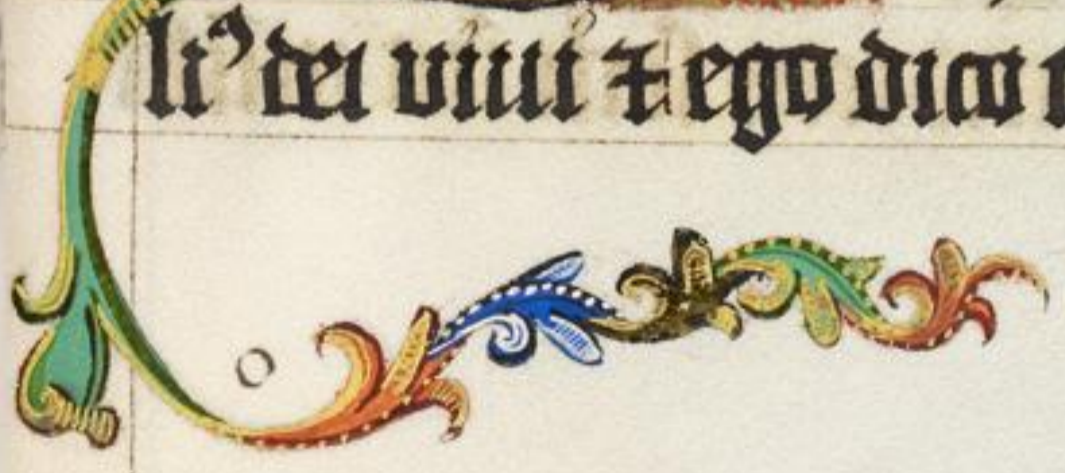 liꝰ dei viui ⁊ ego dico
o